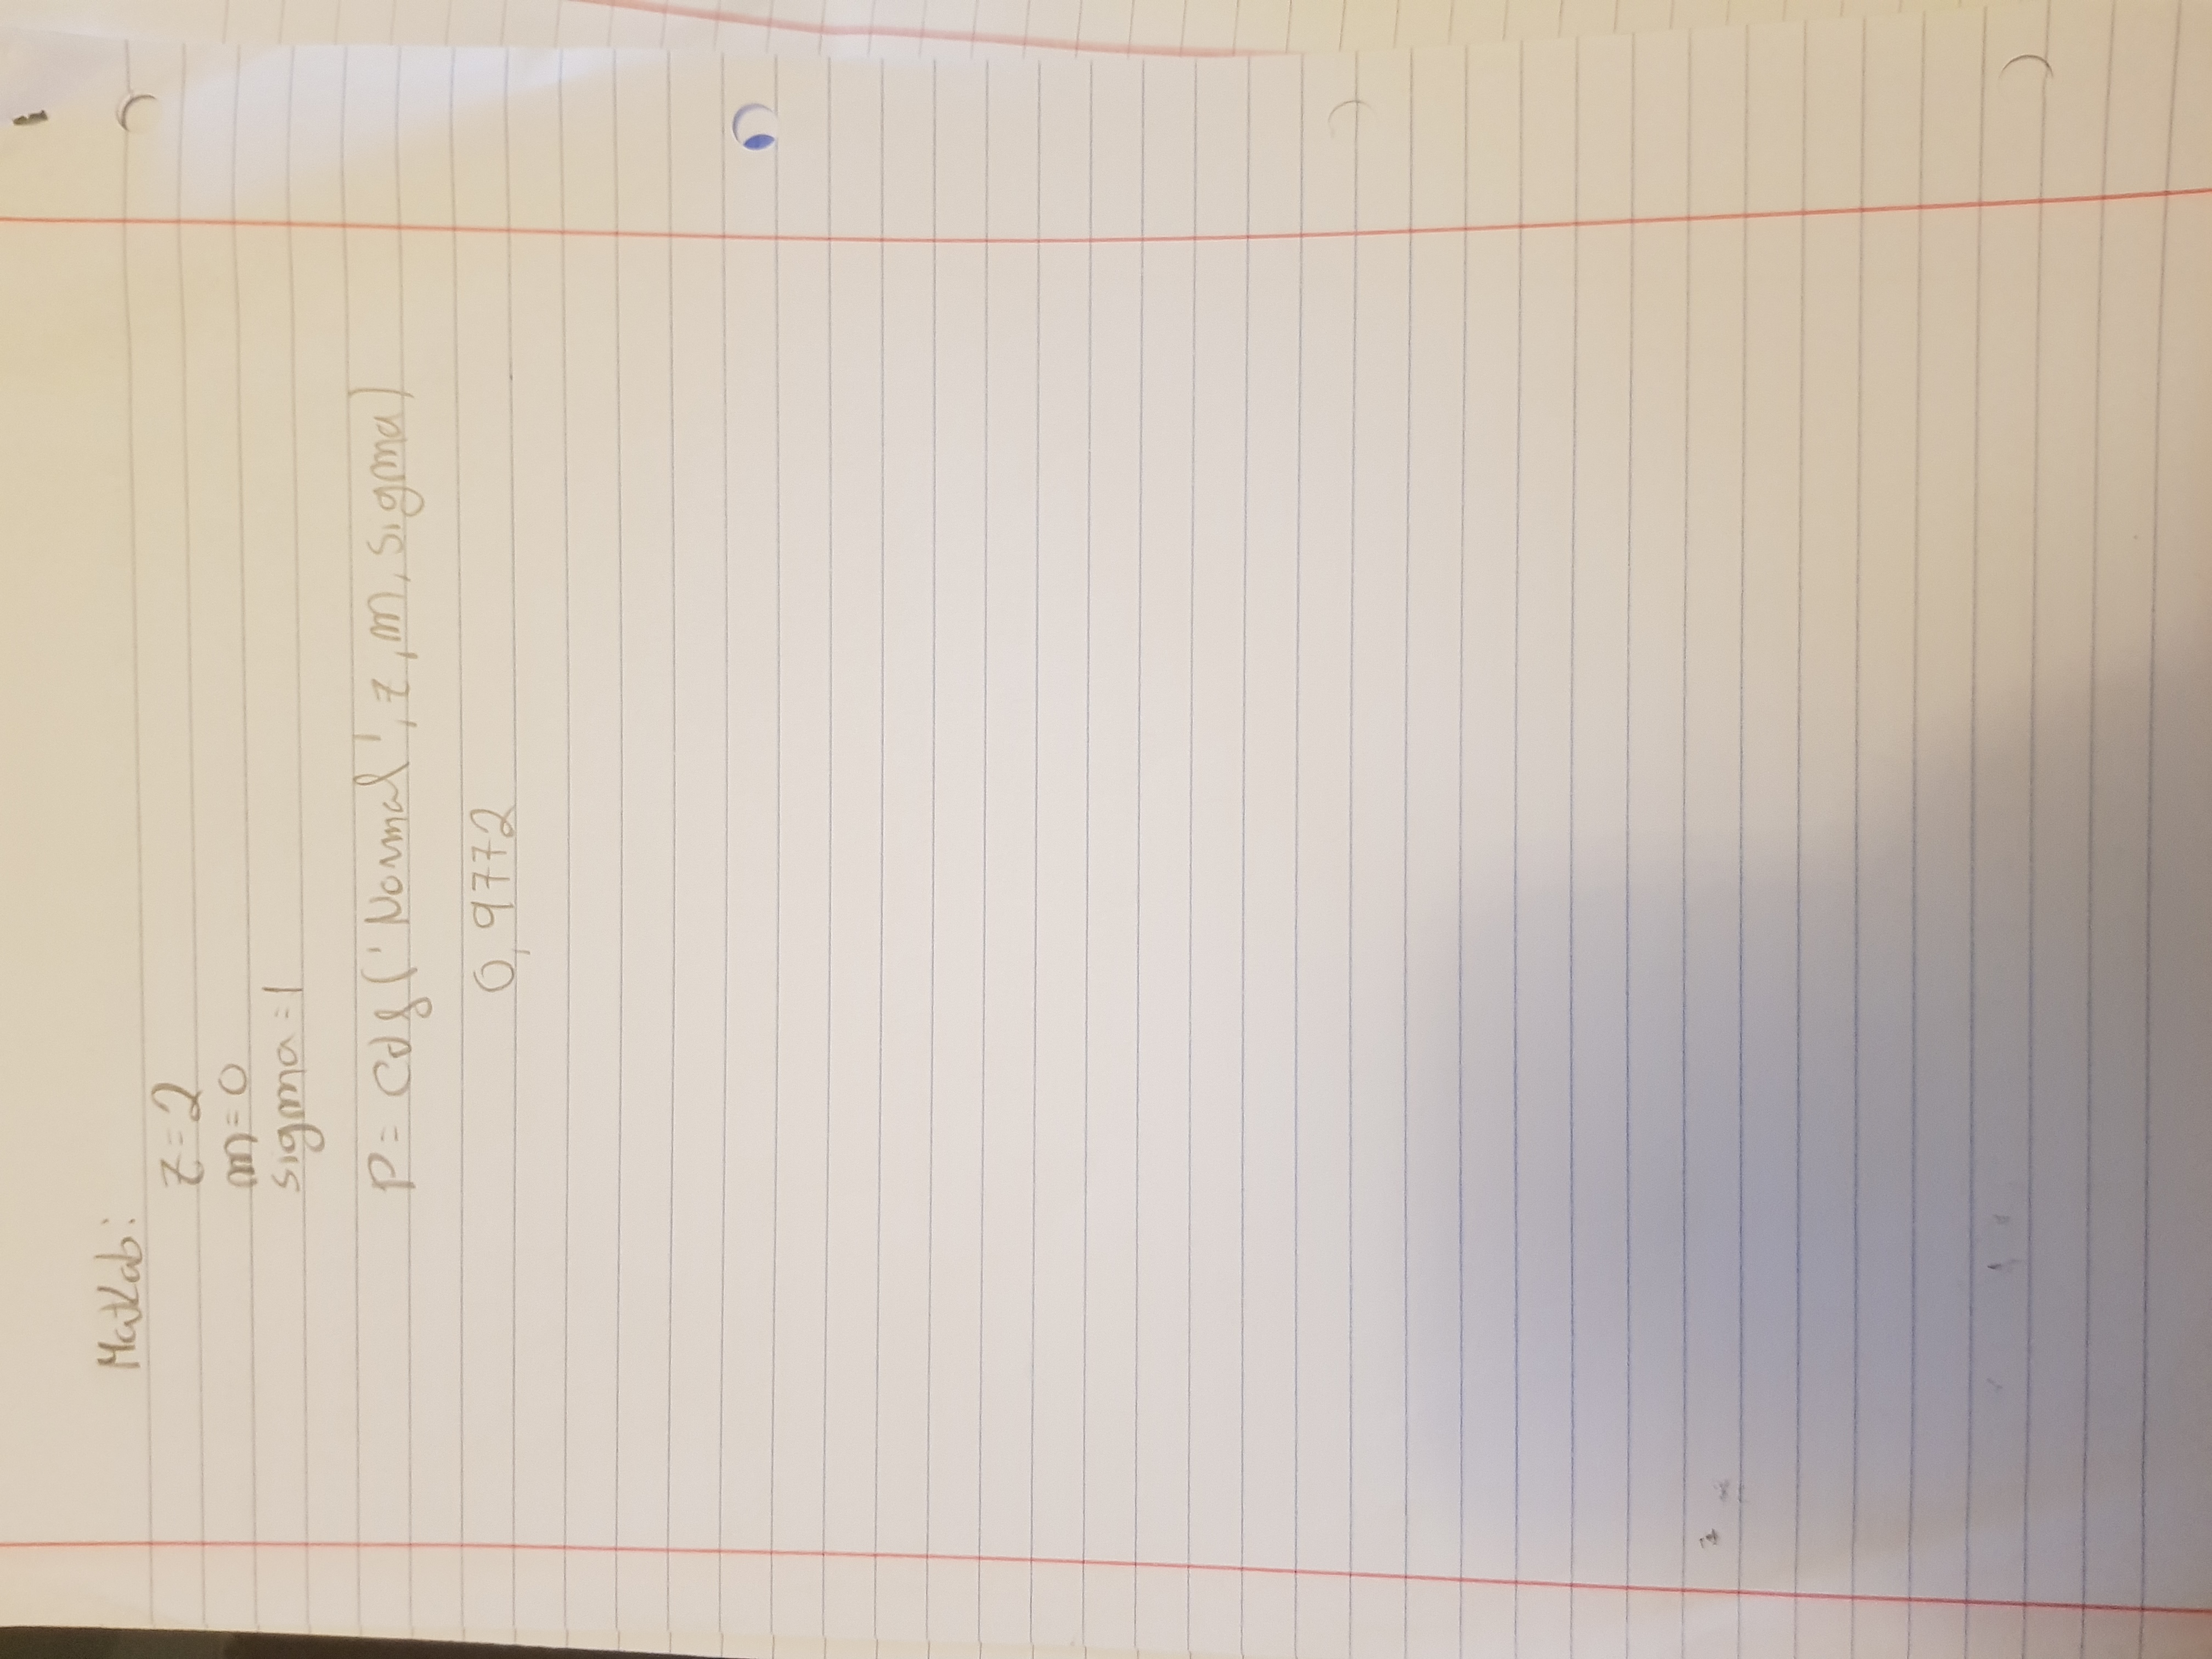 Matlab:
z=2
m=0
sigma=1
P= cdf('Normal', z, m, sigma)
0,9772